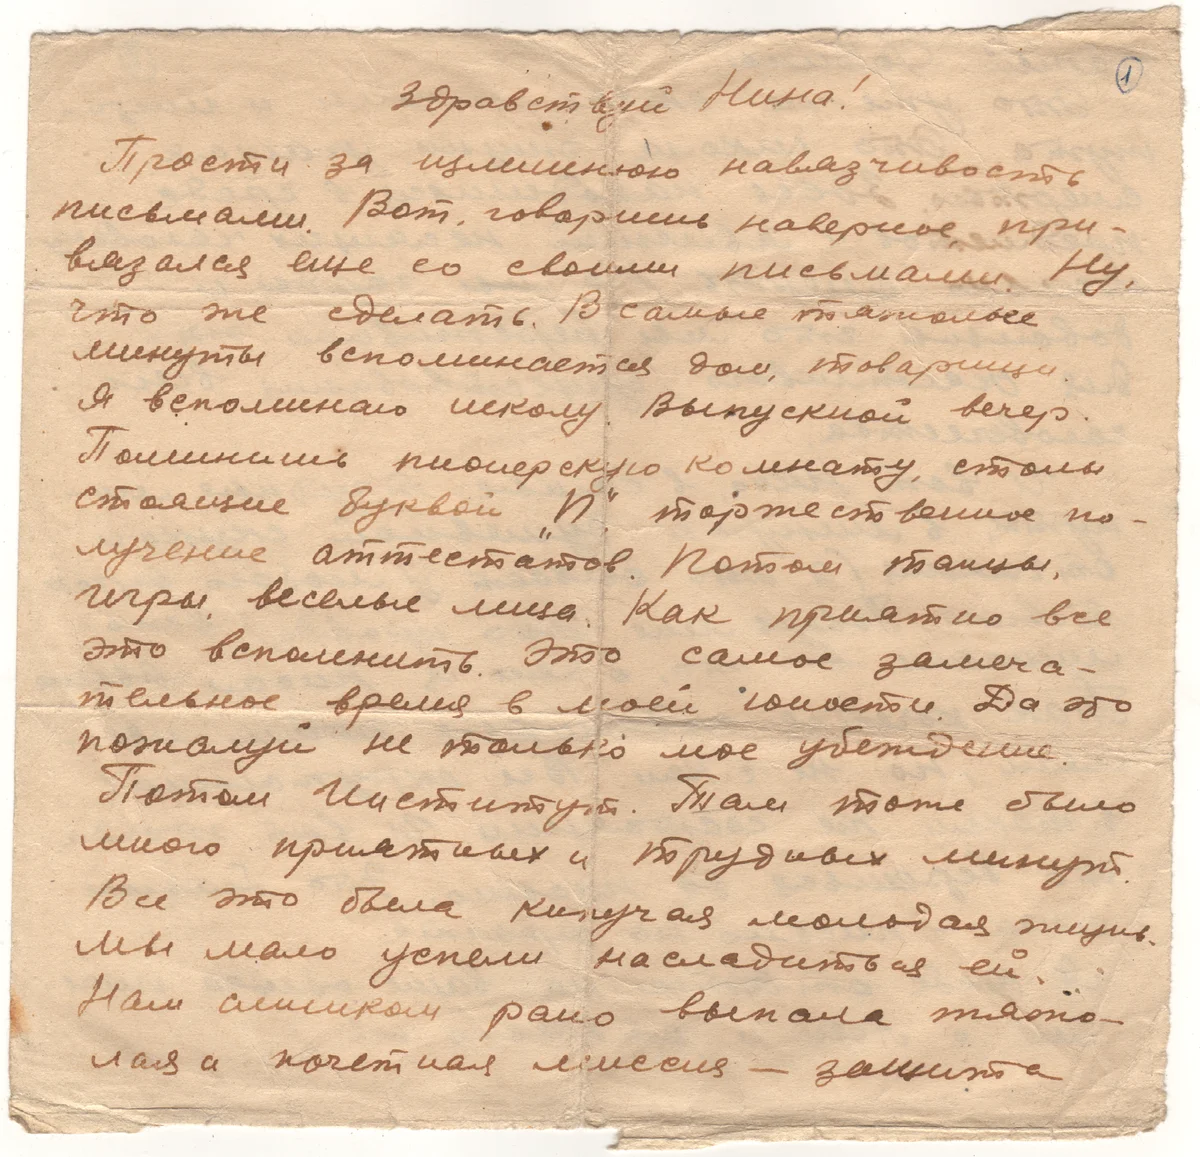 1
Здравствуй Нина!
Прости за излишнюю навязчивость
письмами. Вот, говоришь наверное, при-
вязался еще со своими письмами. Ну,
что же сделать. В самые тяжолые
минуты вспоминается дом, товарищи.
Я вспоминаю школу. Выпускной вечер.
Помнишь пионерскую комнату, столы
стоящие буквой „П“, торжественное по-
лучение аттестатов. Потом танцы,
игры, веселые лица. Как приятно все
это вспомнить. Это самое замеча-
тельное время в моей юности. Да это
пожалуй не только мое убеждение.
Потом Институт. Там тоже было
много приятных и трудных минут.
Все это была кипучая молодая жизнь.
Мы мало успели насладиться ей.
Нам слишком рано выпала тяжо-
лая и почетная миссия — защита